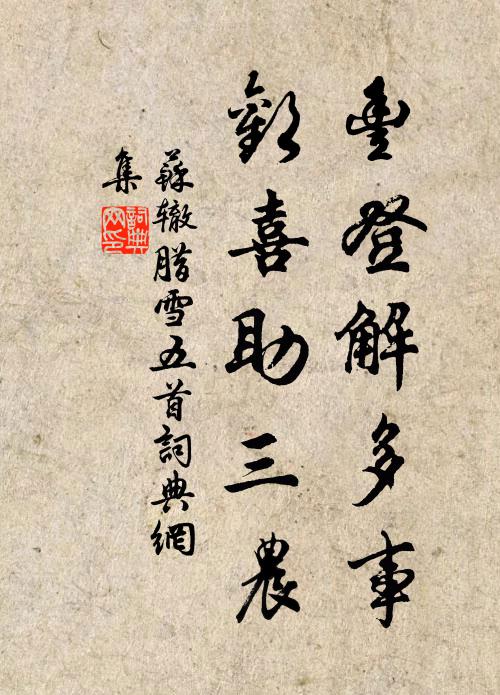 豐登解多事
歡喜助三農
蘇轍腊雪五首詞典網
集
詞典
网印